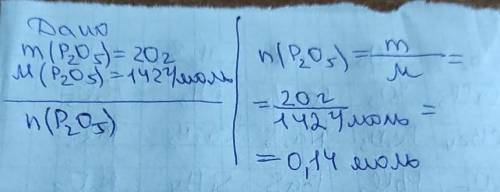 Дано
m(P₂O₅)=20г
M(P₂O₅)=142г/моль
n(P₂O₅)
n(P₂O₅)=m/M=
=20г/142г/моль=
=0,14 моль